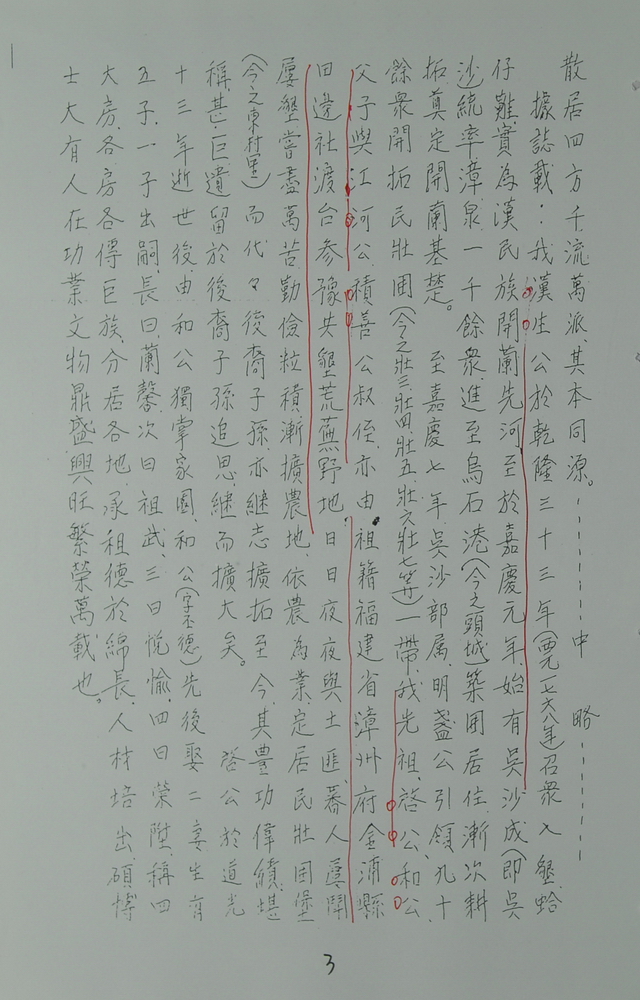 散居四方千流萬派其本同源。------中略------
據誌載：我漢生公於乾隆三十三年(西元一七六八年)召衆入墾蛤
仔難實為漢民族開蘭先河至於嘉慶元年始有吳沙成(即吳
沙)統率漳泉一千餘衆進至烏石港(今之頭城)築囲居住漸次耕
拓奠定開蘭基楚。至嘉慶七年吳沙部属明盞公引領九十
餘衆開拓民壯囲(今之壯三.壯四.壯五.壯六壯七等)一帶.我先祖.啓公.和公
父子與江河公.積善公叔侄.亦由祖籍福建省漳州府金浦縣
田邊社渡台参豫共墾荒蕪野地.日日夜夜與土匪.蕃人屢鬪
屢墾嘗盡萬苦勤儉粒積漸擴農地.依農為業.定居民壯囲堡
(今之東村里)而代々後裔子孫.亦継志擴拓至今.其豊功偉績.堪
稱甚.巨遺留於後裔子孫追思.継而擴大矣。啓公於道光
十三年逝世後.由和公獨掌家園.和公(字丕德)先後娶二妻生育
五子.一子出嗣.長曰.蘭馨.次曰祖武.三曰悅愉.四曰榮陞.稱四
大房.各房各傳巨族.分居各地.承祖德於綿長.人材培出.碩博
士大有人在功業文物鼎盛.興旺繁榮萬載也。
3